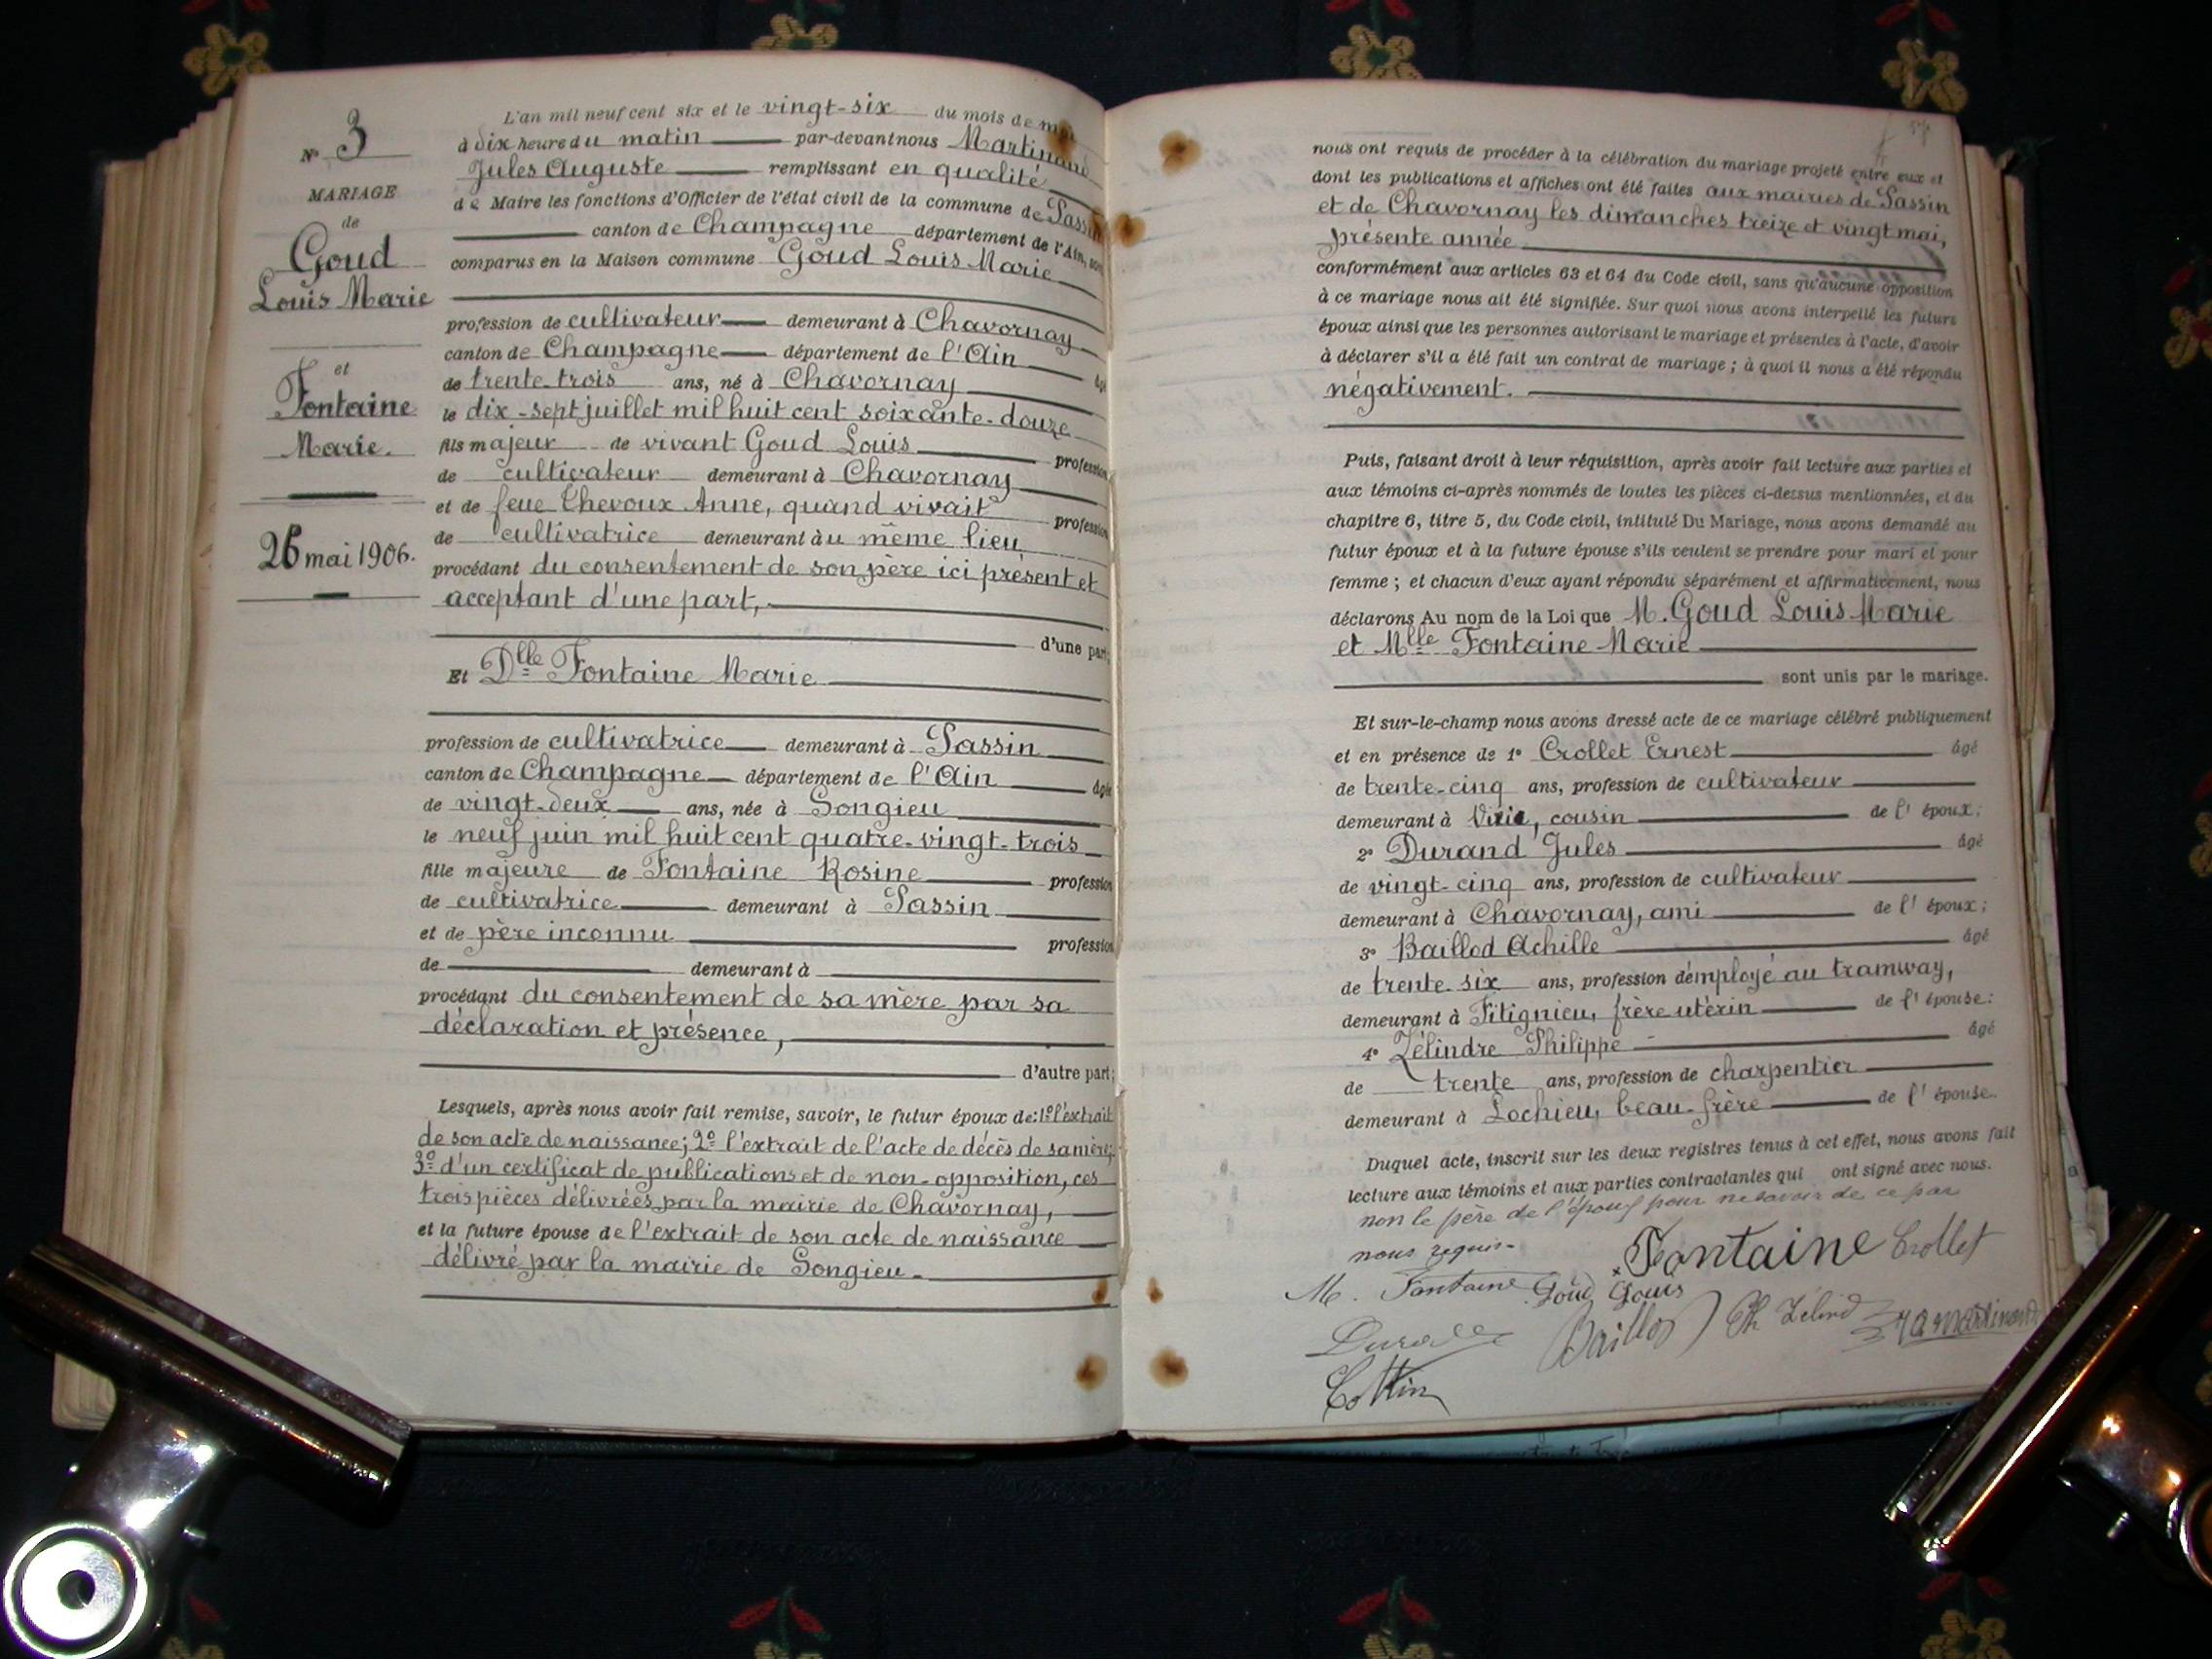 N° 3
MARIAGE
de
Goud
Louis Marie
et
Fontaine
Marie.
26 mai 1906.
L'an mil neuf cent six et le vingt-six du mois de mai
à dix heure du matin par-devant nous Martinand
Jules Auguste remplissant en qualité
de Maire les fonctions d'Officier de l'état civil de la commune de Passin
canton de Champagne département de l'Ain, sont
comparus en la Maison commune Goud Louis Marie
profession de cultivateur demeurant à Chavornay
canton de Champagne département de l'Ain âgé
de trente-trois ans, né à Chavornay
le dix-sept juillet mil huit cent soixante-douze
fils majeur de vivant Goud Louis profession
de cultivateur demeurant à Chavornay
et de feue Thevoux Anne, quand vivait profession
de cultivatrice demeurant àu même lieu
procédant du consentement de son père ici présent et
acceptant d'une part,
d'une part;
Et Dlle Fontaine Marie
profession de cultivatrice demeurant à Passin
canton de Champagne département de l'Ain âgée
de vingt-deux ans, née à Songieu
le neuf juin mil huit cent quatre-vingt-trois
fille majeure de Fontaine Rosine profession
de cultivatrice demeurant à Passin
et de père inconnu profession
de demeurant à
procédant du consentement de sa mère par sa
déclaration et présence,
d'autre part;
Lesquels, après nous avoir fait remise, savoir, le futur époux de: 1° l'extrait
de son acte de naissance; 2° l'extrait de l'acte de décès de sa mère;
3° d'un certificat de publications et de non-opposition, ces
trois pièces délivrées par la mairie de Chavornay,
et la future épouse de l'extrait de son acte de naissance
délivré par la mairie de Songieu.
nous ont requis de procéder à la célébration du mariage projeté entre eux et
dont les publications et affiches ont été faites aux mairies de Passin
et de Chavornay les dimanches treize et vingt mai,
présente année
conformément aux articles 63 et 64 du Code civil, sans qu'aucune opposition
à ce mariage nous ait été signifiée. Sur quoi nous avons interpellé les futurs
époux ainsi que les personnes autorisant le mariage et présentes à l'acte, d'avoir
à déclarer s'il a été fait un contrat de mariage; à quoi il nous a été répondu
négativement.
Puis, faisant droit à leur réquisition, après avoir fait lecture aux parties et
aux témoins ci-après nommés de toutes les pièces ci-dessus mentionnées, et du
chapitre 6, titre 5, du Code civil, intitulé Du Mariage, nous avons demandé au
futur époux et à la future épouse s'ils veulent se prendre pour mari et pour
femme; et chacun d'eux ayant répondu séparément et affirmativement, nous
déclarons Au nom de la Loi que M. Goud Louis Marie
et Mlle Fontaine Marie
sont unis par le mariage.
Et sur-le-champ nous avons dressé acte de ce mariage célébré publiquement
et en présence de 1° Crollet Ernest âgé
de trente-cinq ans, profession de cultivateur
demeurant à cousin de l'époux;
2° Durand Jules âgé
de vingt-cinq ans, profession de cultivateur
demeurant à Chavornay, ami de l'époux;
3° Baillod Achille âgé
de trente-six ans, profession d'employé au tramway,
demeurant à Fitignieu, frère utérin de l'épouse;
4° Zélindre Philippe âgé
de trente ans, profession de charpentier
demeurant à Lochieu, beau-frère de l'épouse.
Duquel acte, inscrit sur les deux registres tenus à cet effet, nous avons fait
lecture aux témoins et aux parties contractantes qui ont signé avec nous.
non le père de l'époux pour ne savoir de ce par
nous requis.
Fontaine Crollet
M. Fontaine Goud Louis
Durand Baillod Ph Zélind JA Martinand
Cottin